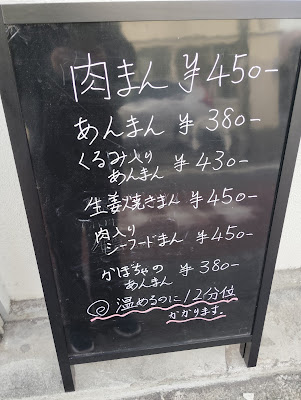 肉まん ¥450-
あんまん ¥380-
くるみ入り
あんまん ¥430-
生姜焼きまん ¥450-
肉入り
シーフードまん ¥450-
かぼちゃの
あんまん ¥380-
◎ 温めるのに12分位
かかります。